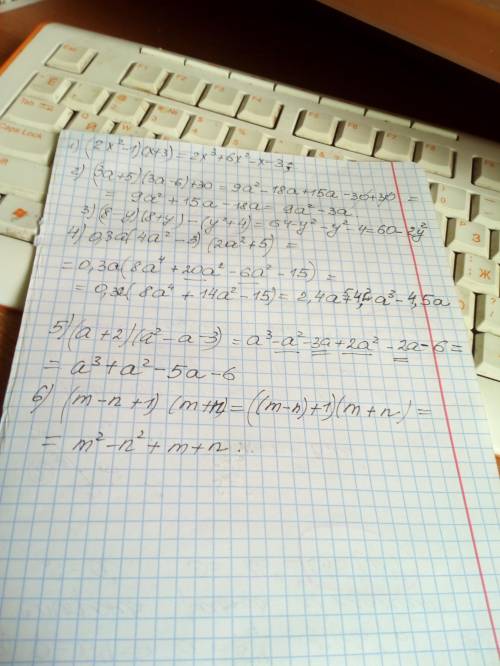 1) (2x²-1)(x+3) = 2x³+6x²-x-3;
2) (3a+5)(3a-6)+30 = 9a²-18a+15a-30+30 =
= 9a²+15a-18a = 9a²-3a
3) (8-y)(8+y)-(y²+4) = 64-y²-y²-4 = 60-2y²
4) 0,3a(4a²-3)(2a²+5) =
= 0,3a(8a⁴+20a²-6a²-15) =
= 0,3a(8a⁴+14a²-15) = 2,4a⁵+4,2a³-4,5a
5) (a+2)(a²-a-3) = a³-a²-3a+2a²-2a-6 =
= a³+a²-5a-6
6) (m-n+1)(m+n) = ((m-n)+1)(m+n) =
= m²-n²+m+n.
Esc
F1
F2
F3
F4
Tab
Caps Lock